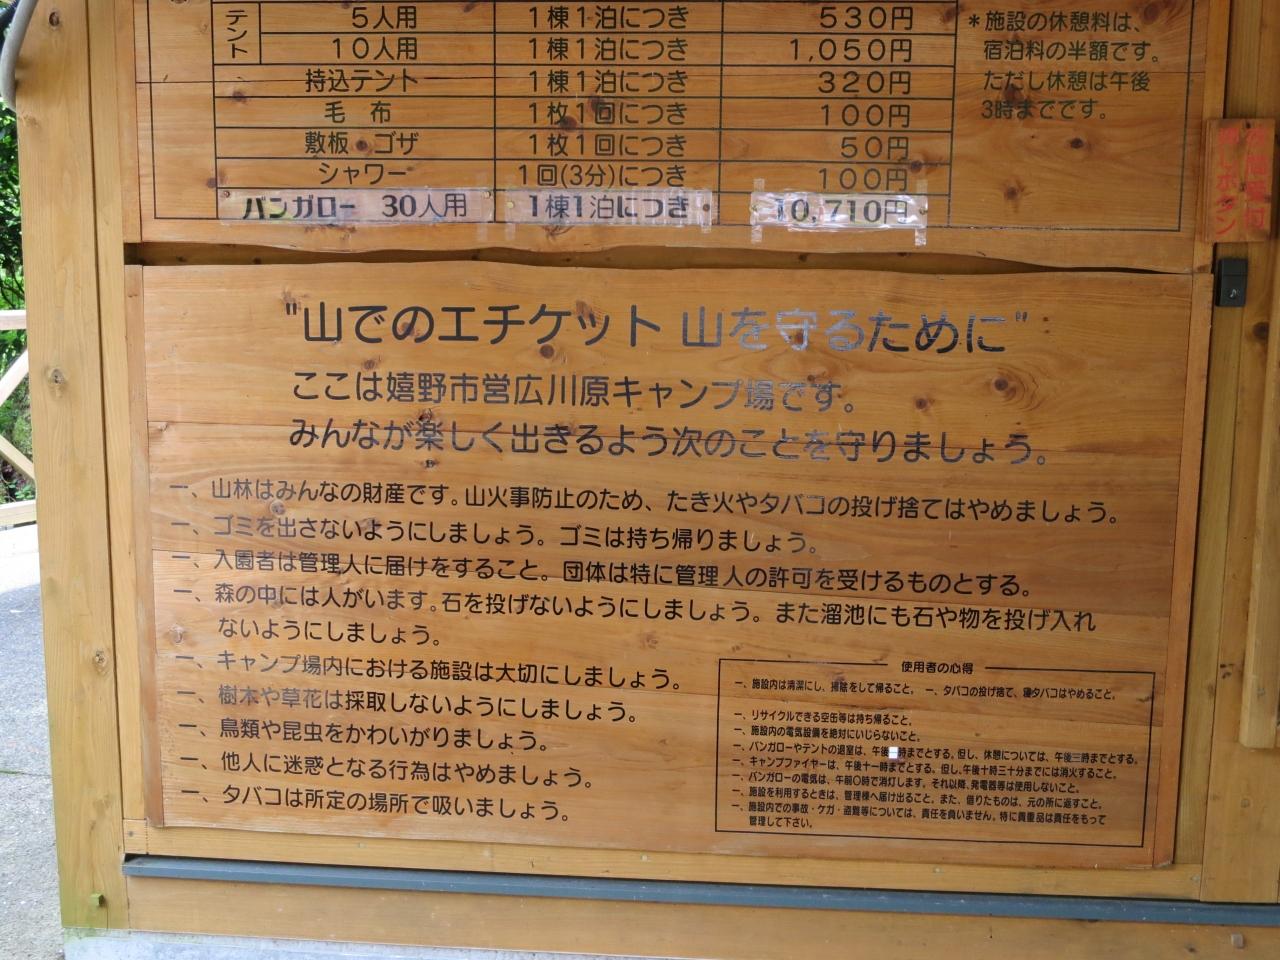 テント
5人用 1棟1泊につき 530円
10人用 1棟1泊につき 1,050円
持込テント 1棟1泊につき 320円
毛 布 1枚1回につき 100円
敷板・ゴザ 1枚1回につき 50円
シャワー 1回(3分)につき 100円
バンガロー 30人用 1棟1泊につき 10,710円
*施設の休憩料は、
宿泊料の半額です。
ただし休憩は午後
3時までです。
押しボタン
"山でのエチケット 山を守るために"
ここは嬉野市営広川原キャンプ場です。
みんなが楽しく出きるよう次のことを守りましょう。
一、山林はみんなの財産です。山火事防止のため、たき火やタバコの投げ捨てはやめましょう。
一、ゴミを出さないようにしましょう。ゴミは持ち帰りましょう。
一、入園者は管理人に届けをすること。団体は特に管理人の許可を受けるものとする。
一、森の中には人がいます。石を投げないようにしましょう。また溜池にも石や物を投げ入れ
ないようにしましょう。
一、キャンプ場内における施設は大切にしましょう。
一、樹木や草花は採取しないようにしましょう。
一、鳥類や昆虫をかわいがりましょう。
一、他人に迷惑となる行為はやめましょう。
一、タバコは所定の場所で吸いましょう。
使用者の心得
一、施設内は清潔にし、掃除をして帰ること。 一、タバコの投げ捨て、寝タバコはやめること。
一、リサイクルできる空缶等は持ち帰ること。
一、施設内の電気設備を絶対にいじらないこと。
一、バンガローやテントの退室は、午後一時までとする。但し、休憩については、午後三時までとする。
一、キャンプファイヤーは、午後十一時までとする。但し、午後十時三十分までには消火すること。
一、バンガローの電気は、午前〇時で消灯します。それ以降、発電器等は使用しないこと。
一、施設を利用するときは、管理棟へ届け出ること。また、借りたものは、元の所に返すこと。
一、施設内での事故・ケガ・盗難等については、責任を負いません。特に貴重品は責任をもって
管理して下さい。